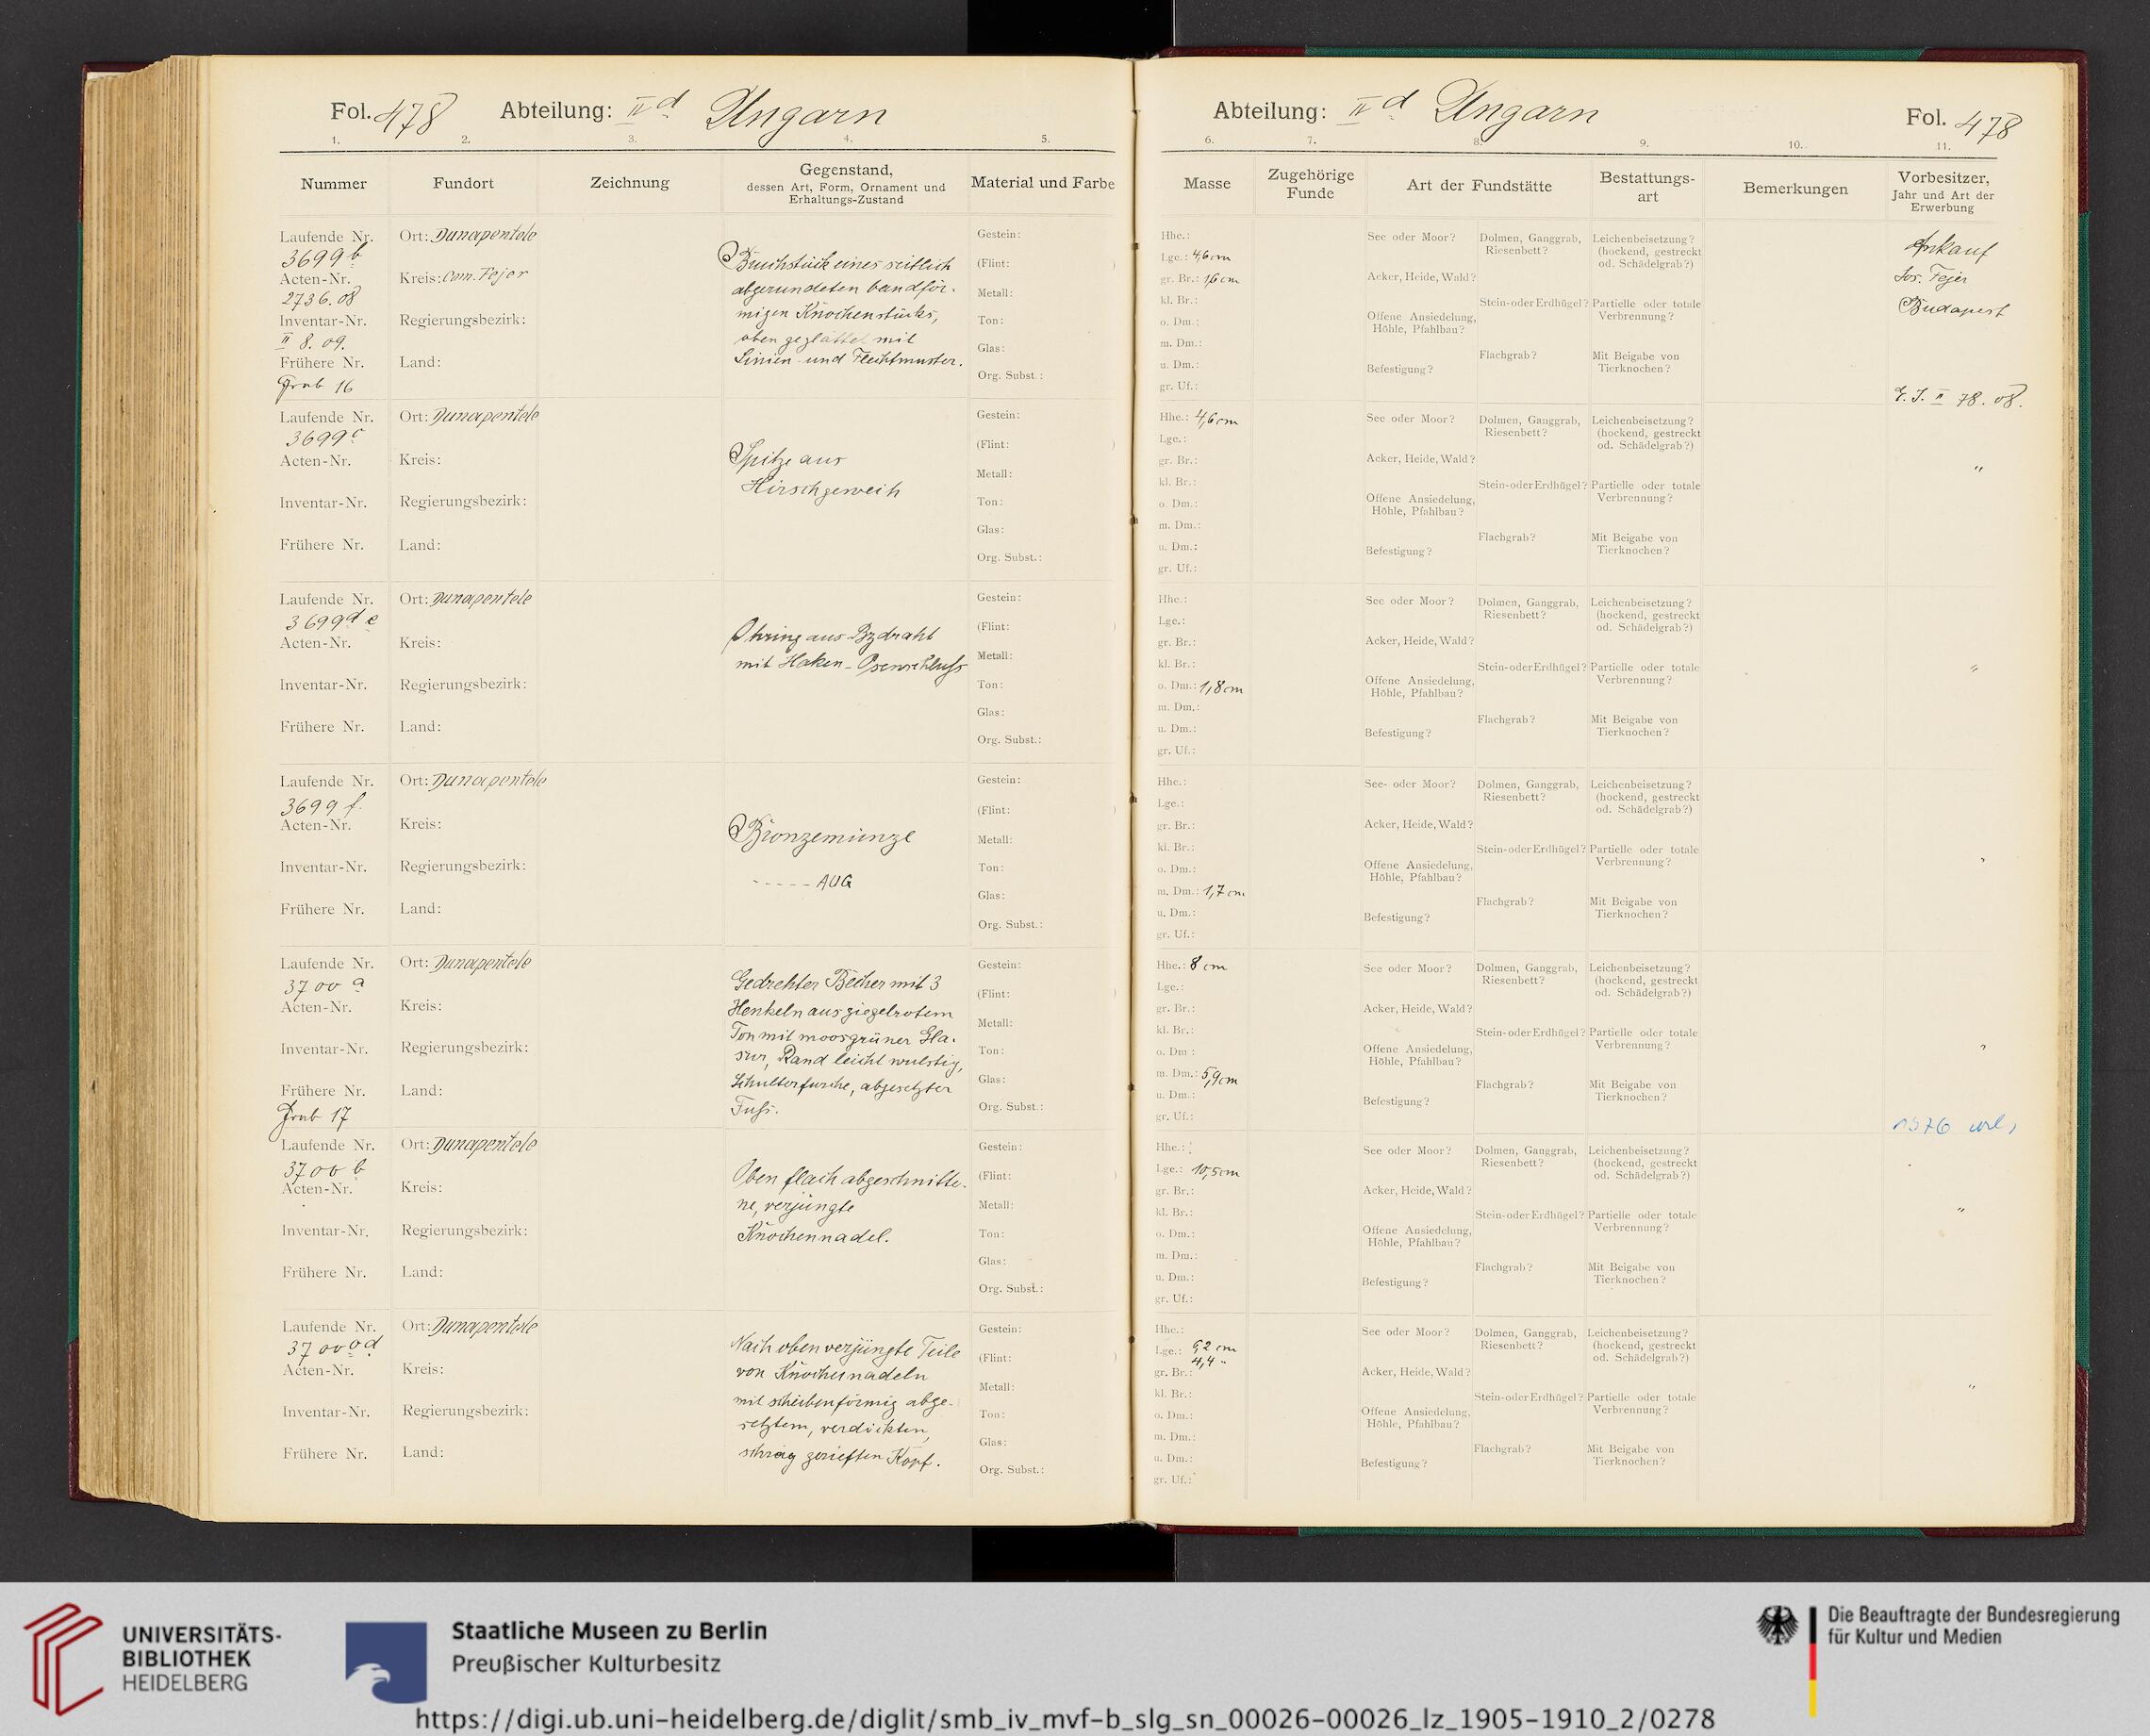 Fol. 478 Abteilung: II d. Ungarn
1. 2. 3. 4. 5.
Nummer Fundort Zeichnung Gegenstand, dessen Art, Form, Ornament und Erhaltungs-Zustand Material und Farbe
Laufende Nr. 3699 b
Acten-Nr. 2736. 08
Inventar-Nr. II 8. 09.
Frühere Nr. Grab 16
Ort: Dunapentele
Kreis: Com. Fejer
Regierungsbezirk:
Land:
Bruchstück eines seitlich
abgerundeten bandför-
migen Knochenstücks,
oben geglättet mit
Linien- und Flechtmuster.
Gestein:
(Flint: )
Metall:
Ton:
Glas:
Org. Subst.:
Laufende Nr. 3699 c
Acten-Nr.
Inventar-Nr.
Frühere Nr.
Ort: Dunapentele
Kreis:
Regierungsbezirk:
Land:
Spitze aus
Hirschgeweih
Gestein:
(Flint: )
Metall:
Ton:
Glas:
Org. Subst.:
Laufende Nr. 3699 d e
Acten-Nr.
Inventar-Nr.
Frühere Nr.
Ort: Dunapentele
Kreis:
Regierungsbezirk:
Land:
Ohring aus Bzdraht
mit Haken-Ösenschluss
Gestein:
(Flint: )
Metall:
Ton:
Glas:
Org. Subst.:
Laufende Nr. 3699 f.
Acten-Nr.
Inventar-Nr.
Frühere Nr.
Ort: Dunapentele
Kreis:
Regierungsbezirk:
Land:
Bronzemünze
- - - - - AUG
Gestein:
(Flint: )
Metall:
Ton:
Glas:
Org. Subst.:
Laufende Nr. 3700 a
Acten-Nr.
Inventar-Nr.
Frühere Nr. Grab 17
Ort: Dunapentele
Kreis:
Regierungsbezirk:
Land:
Gedrehter Becher mit 3
Henkeln aus ziegelrotem
Ton mit moosgrüner Gla-
sur, Rand leicht wulstig,
Schulterfurche, abgesetzter
Fuss.
Gestein:
(Flint: )
Metall:
Ton:
Glas:
Org. Subst.:
Laufende Nr. 3700 b
Acten-Nr.
Inventar-Nr.
Frühere Nr.
Ort: Dunapentele
Kreis:
Regierungsbezirk:
Land:
Oben flach abgeschnitte-
ne, verjüngte
Knochennadel.
Gestein:
(Flint: )
Metall:
Ton:
Glas:
Org. Subst.:
Laufende Nr. 3700 c d
Acten-Nr.
Inventar-Nr.
Frühere Nr.
Ort: Dunapentele
Kreis:
Regierungsbezirk:
Land:
Nach oben verjüngte Teile
von Knochennadeln
mit scheibenförmig abge-
setztem, verdickten,
schräg gerieften Kopf.
Gestein:
(Flint: )
Metall:
Ton:
Glas:
Org. Subst.:
Abteilung: II d. Ungarn Fol. 478
6. 7. 8. 9. 10. 11.
Masse Zugehörige Funde Art der Fundstätte Bestattungs-art Bemerkungen Vorbesitzer, Jahr und Art der Erwerbung
Hhe.:
Lge.: 4,6 cm
gr. Br.: 1,6 cm
kl. Br.:
o. Dm.:
m. Dm.:
u. Dm.:
gr. Uf.:
See oder Moor?
Acker, Heide, Wald?
Offene Ansiedelung, Höhle, Pfahlbau?
Befestigung?
Dolmen, Ganggrab, Riesenbett?
Stein- oder Erdhügel?
Flachgrab?
Leichenbeisetzung? (hockend, gestreckt od. Schädelgrab?)
Partielle oder totale Verbrennung?
Mit Beigabe von Tierknochen?
Ankauf
Jos. Fejer
Budapest
E. J. II 78. 08.
Hhe.: 4,6 cm
Lge.:
gr. Br.:
kl. Br.:
o. Dm.:
m. Dm.:
u. Dm.:
gr. Uf.:
See oder Moor?
Acker, Heide, Wald?
Offene Ansiedelung, Höhle, Pfahlbau?
Befestigung?
Dolmen, Ganggrab, Riesenbett?
Stein- oder Erdhügel?
Flachgrab?
Leichenbeisetzung? (hockend, gestreckt od. Schädelgrab?)
Partielle oder totale Verbrennung?
Mit Beigabe von Tierknochen?
"
Hhe.:
Lge.:
gr. Br.:
kl. Br.:
o. Dm.: 1,8 cm
m. Dm.:
u. Dm.:
gr. Uf.:
See oder Moor?
Acker, Heide, Wald?
Offene Ansiedelung, Höhle, Pfahlbau?
Befestigung?
Dolmen, Ganggrab, Riesenbett?
Stein- oder Erdhügel?
Flachgrab?
Leichenbeisetzung? (hockend, gestreckt od. Schädelgrab?)
Partielle oder totale Verbrennung?
Mit Beigabe von Tierknochen?
"
Hhe.:
Lge.:
gr. Br.:
kl. Br.:
o. Dm.:
m. Dm.: 1,7 cm
u. Dm.:
gr. Uf.:
See- oder Moor?
Acker, Heide, Wald?
Offene Ansiedelung, Höhle, Pfahlbau?
Befestigung?
Dolmen, Ganggrab, Riesenbett?
Stein- oder Erdhügel?
Flachgrab?
Leichenbeisetzung? (hockend, gestreckt od. Schädelgrab?)
Partielle oder totale Verbrennung?
Mit Beigabe von Tierknochen?
"
Hhe.: 8 cm
Lge.:
gr. Br.:
kl. Br.:
o. Dm.:
m. Dm.: 5,9 cm
u. Dm.:
gr. Uf.:
See oder Moor?
Acker, Heide, Wald?
Offene Ansiedelung, Höhle, Pfahlbau?
Befestigung?
Dolmen, Ganggrab, Riesenbett?
Stein- oder Erdhügel?
Flachgrab?
Leichenbeisetzung? (hockend, gestreckt od. Schädelgrab?)
Partielle oder totale Verbrennung?
Mit Beigabe von Tierknochen?
"
Hhe.:
Lge.: 10,5 cm
gr. Br.:
kl. Br.:
o. Dm.:
m. Dm.:
u. Dm.:
gr. Uf.:
See oder Moor?
Acker, Heide, Wald?
Offene Ansiedelung, Höhle, Pfahlbau?
Befestigung?
Dolmen, Ganggrab, Riesenbett?
Stein- oder Erdhügel?
Flachgrab?
Leichenbeisetzung? (hockend, gestreckt od. Schädelgrab?)
Partielle oder totale Verbrennung?
Mit Beigabe von Tierknochen?
"
Hhe.:
Lge.: 9,2 cm
4,4 "
gr. Br.:
kl. Br.:
o. Dm.:
m. Dm.:
u. Dm.:
gr. Uf.:
See oder Moor?
Acker, Heide, Wald?
Offene Ansiedelung, Höhle, Pfahlbau?
Befestigung?
Dolmen, Ganggrab, Riesenbett?
Stein- oder Erdhügel?
Flachgrab?
Leichenbeisetzung? (hockend, gestreckt od. Schädelgrab?)
Partielle oder totale Verbrennung?
Mit Beigabe von Tierknochen?
"
UNIVERSITÄTS-
BIBLIOTHEK
HEIDELBERG
Staatliche Museen zu Berlin
Preußischer Kulturbesitz
Die Beauftragte der Bundesregierung
für Kultur und Medien
https://digi.ub.uni-heidelberg.de/diglit/smb_iv_mvf-b_slg_sn_00026-00026_lz_1905-1910_2/0278